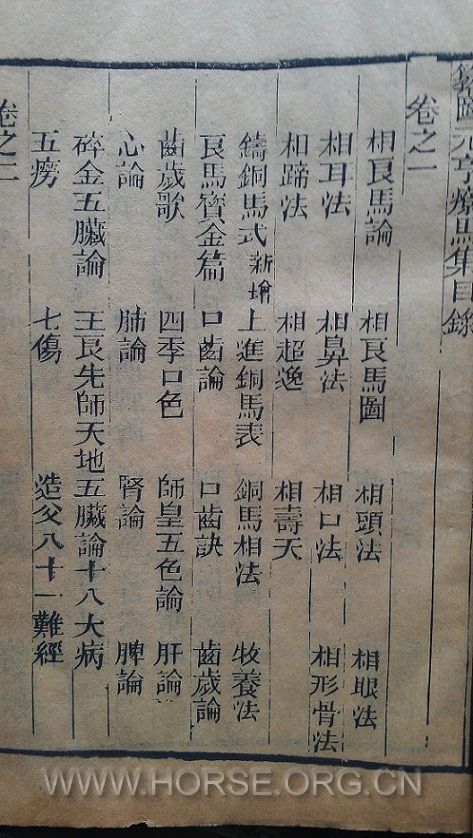 纂圖元亨療馬集目錄
卷之一
相良馬論 相良馬圖 相頭法 相眼法
相耳法 相鼻法 相口法 相形骨法
相蹄法 相超逸 相壽夭
鑄銅馬式 新增 上進銅馬表 銅馬相法 牧養法
良馬寶金篇 口齒論 口齒訣 齒歲論
齒歲歌 四季口色 師皇五色論 肝論
心論 肺論 腎論 脾論
碎金五臟論 王良先師天地五臟論十八大病
五癆 七傷 造父八十一難經
卷之二
WWW.HORSE.ORG.CN